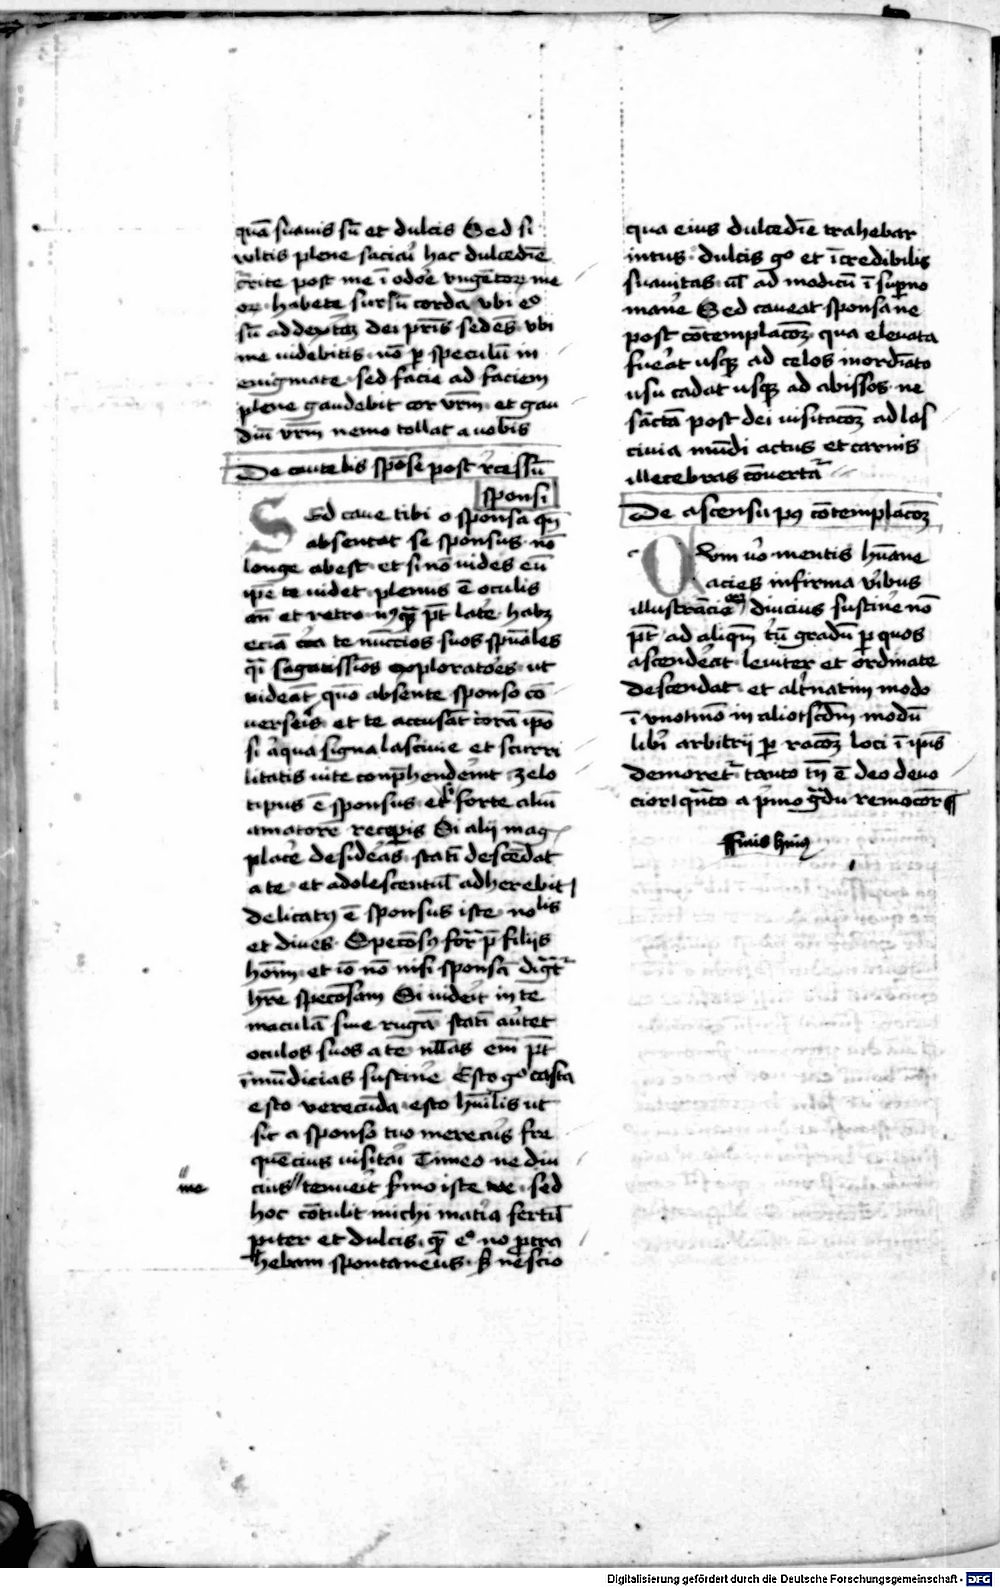 quā suauis sū et dulcis Sed si
vltis plene saciai hac dulcedīe
c̄rite post me ī odoe vngētoꝝ me
oꝝ habete sursū corda vbi eᵒ
sū ad dextā dei pr̄is sedēs vbi
me uidebitis nō ꝑ speculū in
enigmate sed facie ad faciem
plene gaudebit cor vr̄m et gau
diū vr̄m nemo tollat a uobis
De cautelis spōse post r̄cessū
sponsi
Sed caue tibi o sponsa qn̄
absentat se sponsus nō
longe abest et si nō uides eū
ip̄e te uidet plenus ē oculis
an̄ et retro nūqͣ pt̄ late habꝫ
eciā cͣa te nūccios suos spūales
qͣi sagatissīos exploratoēs ut
uideāt quō absente sponso cō
uerseis et te accusāt corā ip̄o
si aqua signa lasciuie et scurri
litatis uite conp̄henderint zelo
tipus ē sponsus et forte aliū
amatorē recepis Si alij mag
place desideas statī descēdat
a te et adolescentul̄ adherebit
delicatꝰ ē sponsus iste nolis
et diues Specōsꝰ for̄ p̄ filijs
hoīm et iō nō nisi sponsā dig̅t̄
hr̄e specosam Si uideit in te
maculā siue rugā statī auetet
oculos suos a te nll̄as em̄ pt̄
īmūdicias sustine Esto gᵒ casta
esto verecūda esto hūilis ut
sic a sponso tuo merearis fre
quēcius uisitai Timeo ne diu
cius tenueit s̄mo iste sed
me
hoc cōtulit michi mat̄ia fertil̄
piter et dulcis qͣ eᵒ nō ꝓtra
hebam spontaneus s̄ nescio
qua eius dulcedīe trahebar
intus dulcis gᵒ et īcredibilis
suauitas al̄ ad modicū ī sup̄mo
mane Sed caueat sponsa ne
post cōtemplacōꝫ qua eleuata
fueāt usqꝫ ad celos inordīato
usu cadat usqꝫ ad abissos ne
sāctā post dei uisitacōꝫ ad las
ciuia mūdi actus et carnis
illecebras cōuertat̄
De ascensu pꝰ cōtemplacōꝫ
Qvm uᵒ mentis hūane
acies infirma v̄ibus
illustrācie diucius sustine nō
pt̄ ad aliqm̄ tn̄ gradū ꝑ quos
ascendeāt leuiter et ordinate
descendat et alt̄natim modo
ī vnotmō in aliotscdm̄ modū
libi arbitrij ꝑ racōꝫ loci ī ip̄is
demoret̄ tanto tn̄ ē deo deuo
cior qn̄to a p̄mo gͣdu remocōr
ffinis huiꝰ
Digitalisierung gefördert durch die Deutsche Forschungsgemeinschaft - DFG